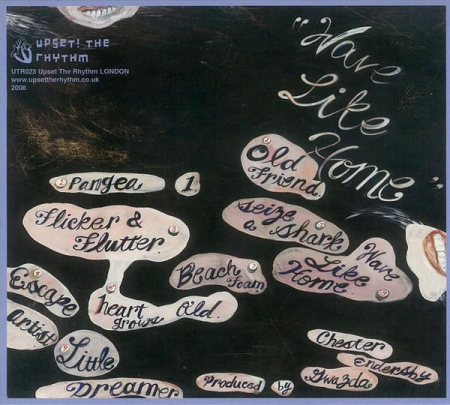 UPSET! THE
RHYTHM
UTR023 Upset The Rhythm LONDON
www.upsettherhythm.co.uk
2008
"Wave
Like
Home"
Old
Friend
Pangea 1
Flicker &
Flutter
Seize
a Shark
Wave
Like
Home
Beach
Foam
Escape
artist
heart
grows Old
Little
Dreamer
Produced by
Chester
endersby
Gwazda